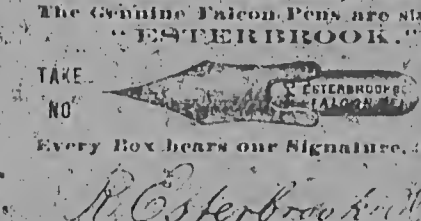 The Genuine Falcon Pens are sta
"ESTERBROOK."
TAKE
NO
ESTERBROOK
FALCON
Every Box bears our Signature,
R. Esterbrook